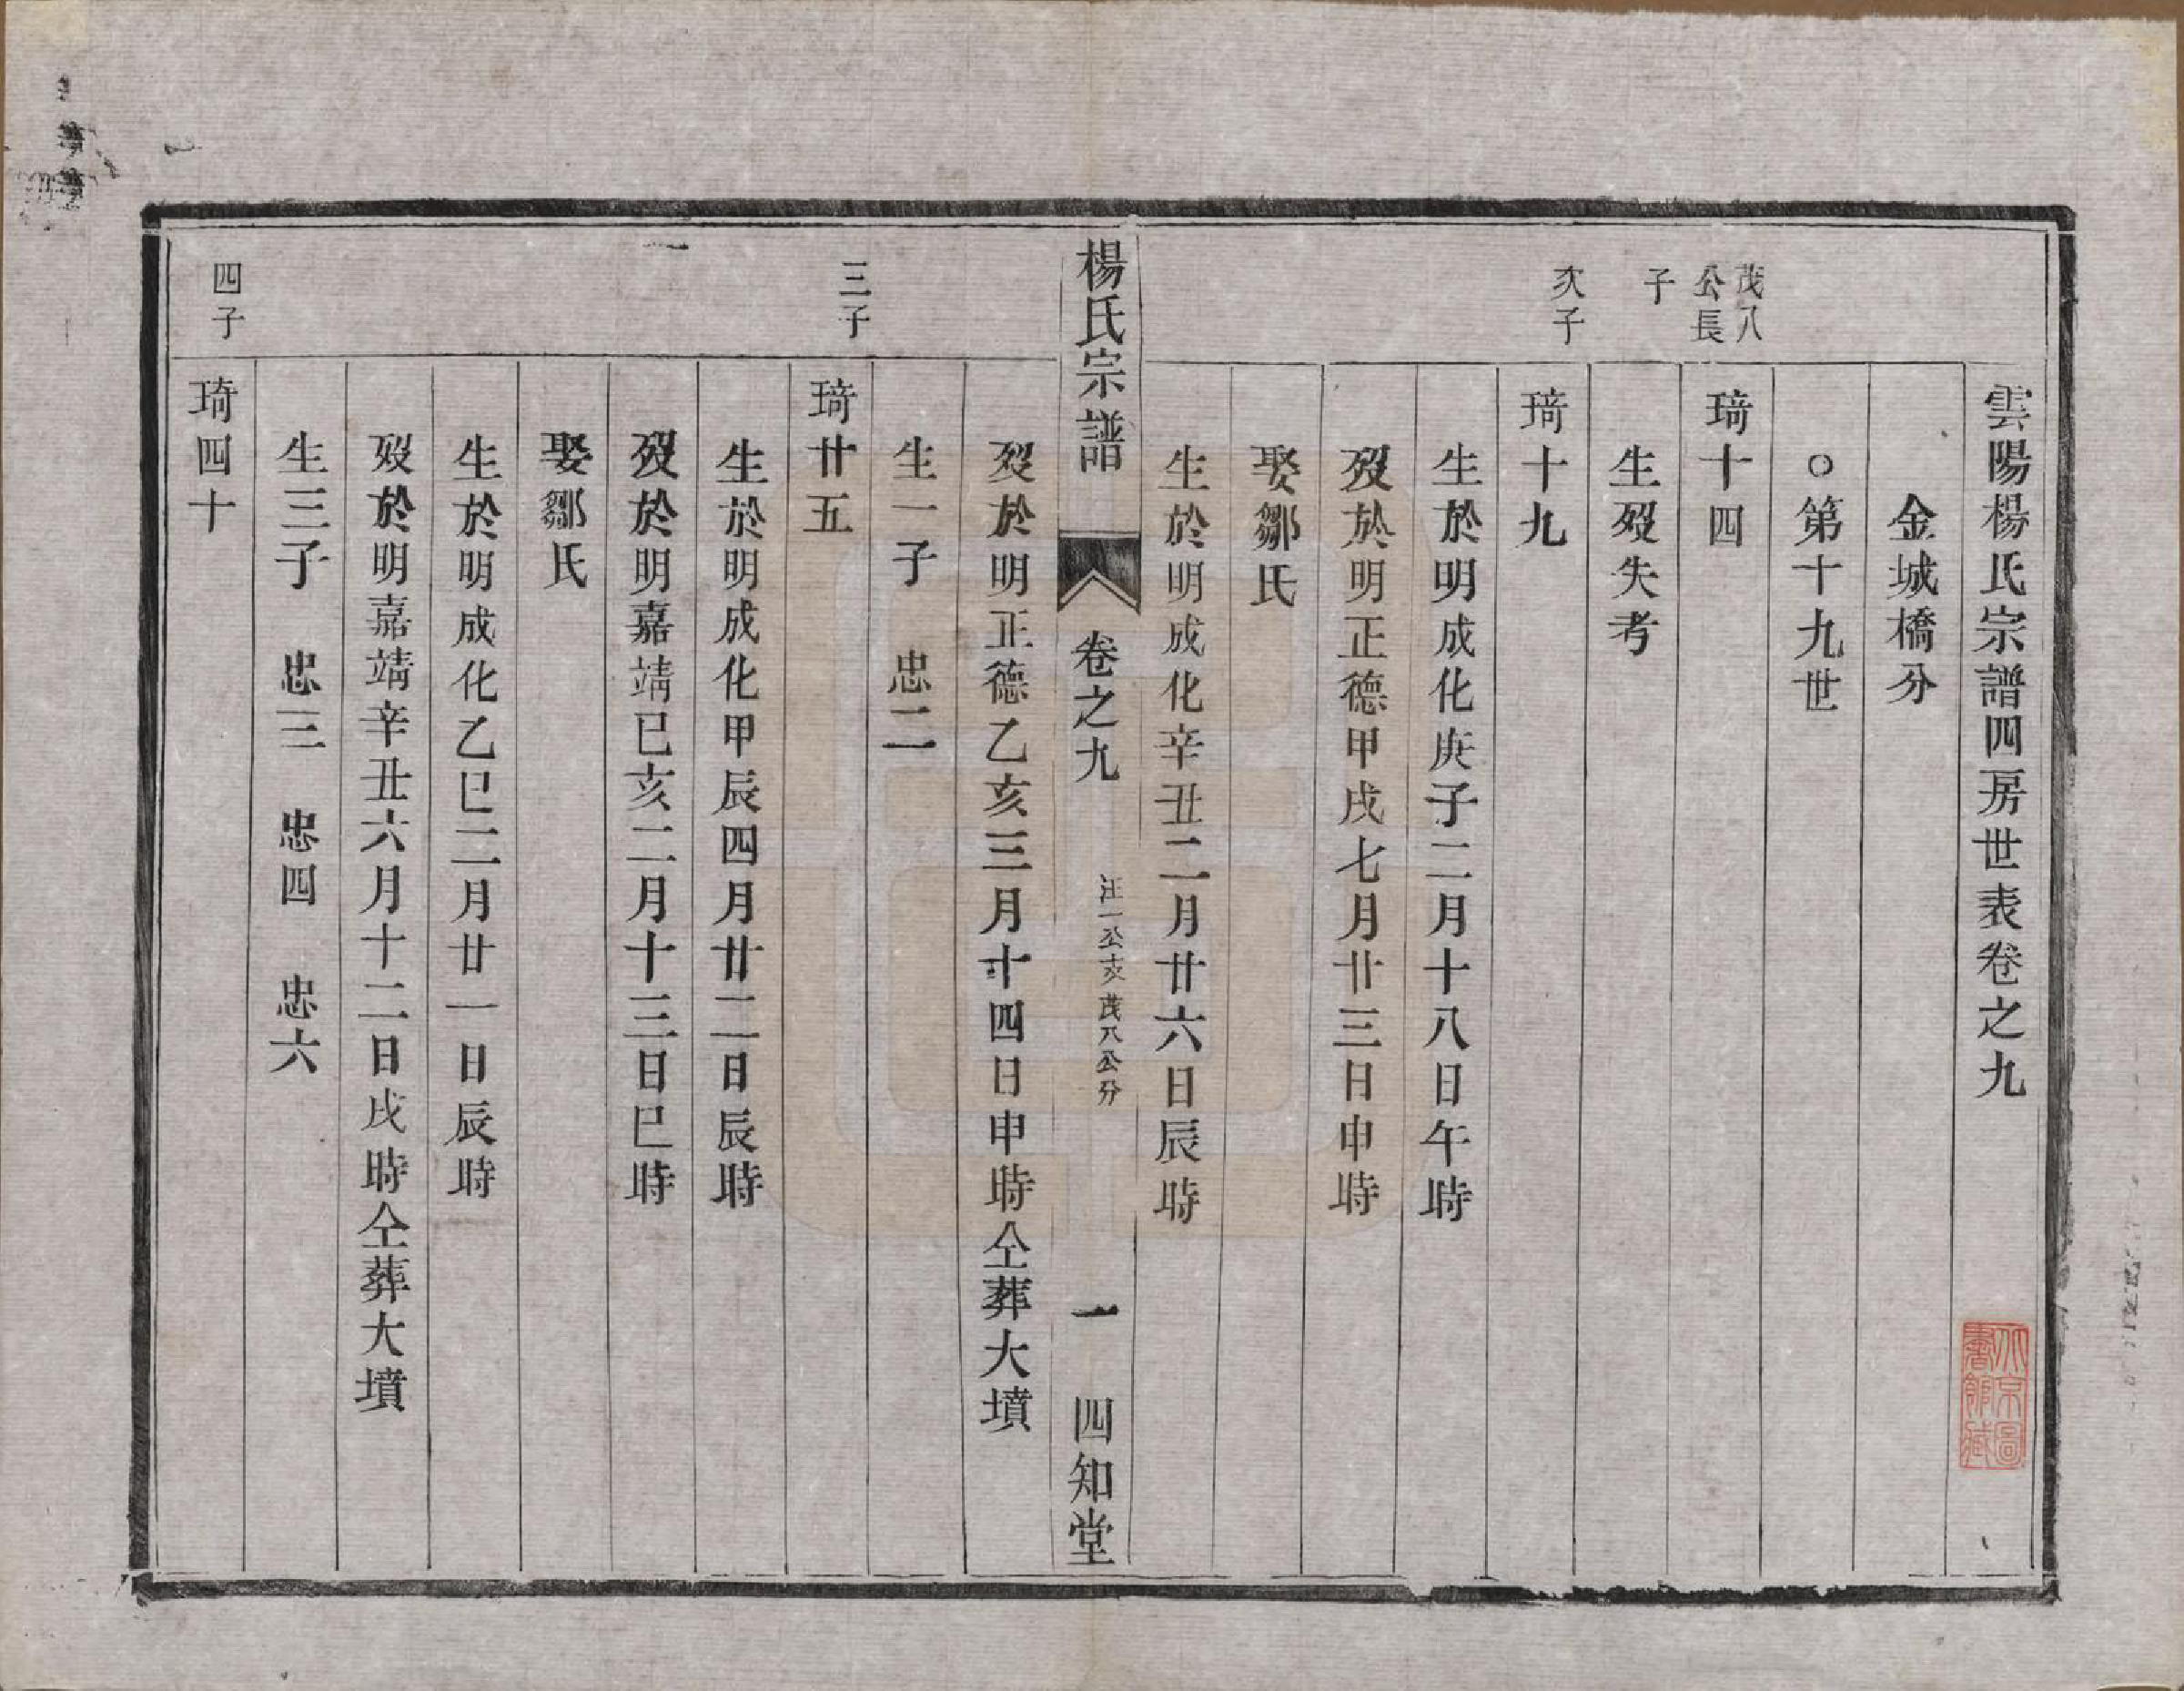 雲陽楊氏宗譜四房世表卷之九
金城橋分
○第十九世
茂八
公長
子
琦十四
生歿失考
次子
琦十九
生於明成化庚子二月十八日午時
歿於明正德甲戌七月廿三日申時
娶鄒氏
生於明成化辛丑二月廿六日辰時
楊氏宗譜 卷之九 汪一公支茂八公分 一 四知堂
歿於明正德乙亥三月十四日申時仝葬大墳
生一子 忠二
三子
琦廿五
生於明成化甲辰四月廿二日辰時
歿於明嘉靖已亥二月十三日巳時
娶鄒氏
生於明成化乙巳二月廿一日辰時
歿於明嘉靖辛丑六月十二日戌時仝葬大墳
生三子 忠三 忠四 忠六
四子
琦四十